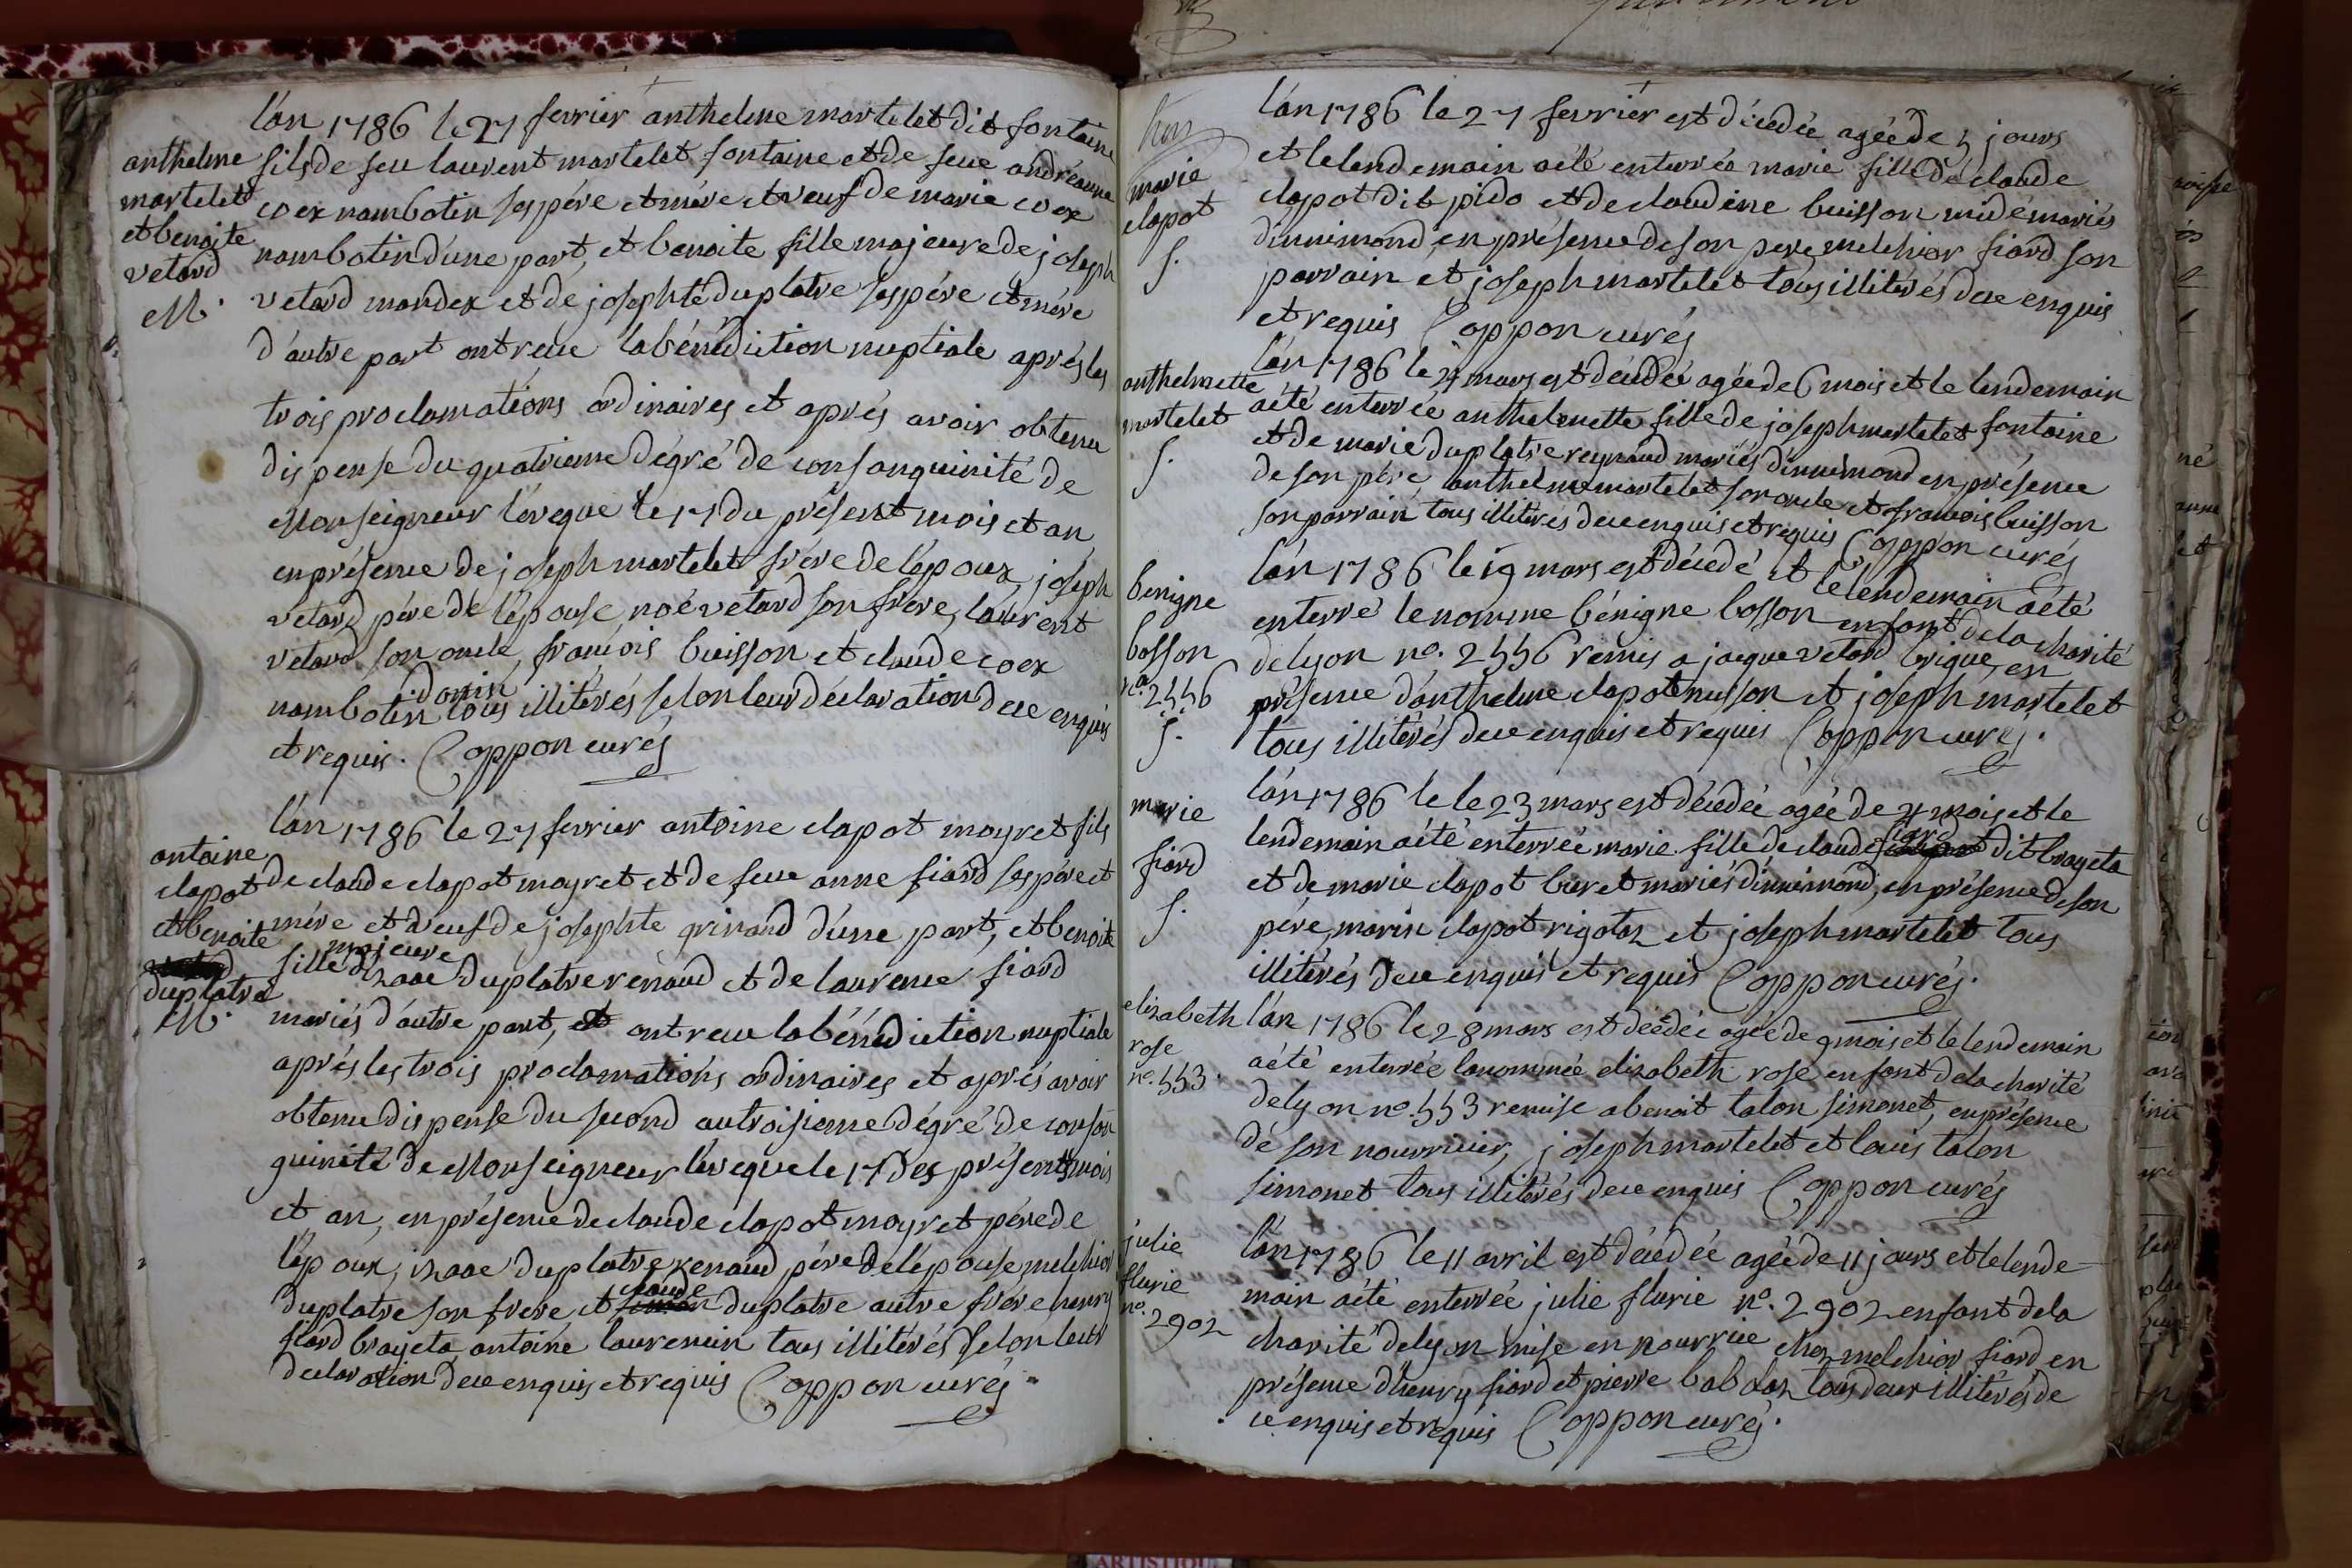 anthelme
martelet
et benoite
vetard
M.
l'an 1786 le 27 fevrier anthelme martelet dit fontaine
fils de feu laurent martelet fontaine et de feue andréanne
coex nambotin ses pére et mére et veuf de marie coex
nambotin d'une part, et benoite fille majeure de joseph
vetard mandex et de josephte duplatre ses pére et mére
d'autre part ont reçue la bénédiction nuptiale aprés les
trois proclamations ordinaires et aprés avoir obtenu
dispense du quatrieme dégré de consanguinité de
Monseigneur l'éveque le 17 du présent mois et an
en présence de joseph martelet frére de l'époux, joseph
vetard pére de l'épouse, noé vetard son frére, laurent
vetard son oncle, françois buisson et claude coex
donin
nambotin tous illitérés selon leur déclaration de ce enquis
et requis. Coppon curés
antoine
clapot
et benoite
duplatre
M.
l'an 1786 le 27 fevrier antoine clapot mayret fils
de claude clapot mayret et de feue anne fiard ses pére et
mére et veuf de josephte grinand d'une part, et benoite
majeure
fille d'izaac duplatre renaud et de laurence fiard
mariés d'autre part, et ont reçue la bénédiction nuptiale
aprés les trois proclamations ordinaires et aprés avoir
obtenu dispense du second au troisieme dégré de consan
guinité de Monseigneur l'éveque le 17 des présents mois
et an, en présence de claude clapot mayret pére de
l'époux, izaac duplatre renaud pére de l'épouse, melchior
claude
duplatre son frere et duplatre autre frére henry
fiard brayeta antoine laurencin tous illitérés selon leur
declaration de ce enquis et requis Coppon curés
marie
clapot
S.
l'an 1786 le 27 fevrier est décédée agée de 5 jours
et le lendemain a été enterrée marie fille de claude
clapot dit pido et de claudine buisson midé mariés
d'innimond, en présence de son pere, melchior fiard son
parrain et joseph martelet tous illitérés de ce enquis
et requis Coppon curés
anthelmette
martelet
S.
l'an 1786 le 4 mars est décédée agée de 6 mois et le lendemain
a été enterrée anthelmette fille de joseph martelet fontaine
et de marie duplatre reynaud mariés d'innimond en présence
de son pére, anthelme martelet son oncle et françois buisson
son parrain tous illitérés de ce enquis et requis Coppon curés
benigne
bosson
no. 2556
S.
l'an 1786 le 19 mars est décédé et le lendemain a été
enterré le nommé bénigne bosson enfant de la charité
de lyon no. 2556 remis a jacque vetard brigue, en
présence d'anthelme clapot musson et joseph martelet
tous illitérés de ce enquis et requis Coppon curés.
marie
fiard
S.
l'an 1786 le le 23 mars est décédée agée de 4 mois et le
fiard
lendemain a été enterrée marie fille de claude dit brayeta
et de marie clapot buret mariés d'innimond, en présence de son
pére, marin clapot rigotaz et joseph martelet tous
illitérés de ce enquis et requis Coppon curés.
elizabeth
rose
no. 553.
l'an 1786 le 28 mars est décédée agée de 9 mois et le lendemain
a été enterrée la nommée elizabeth rose enfant de la charité
de lyon no. 553 remise a benoit talon simonet, en présence
de son nourricier, joseph martelet et louis talon
simonet tous illitérés de ce enquis Coppon curés
julie
flurie
no. 2902
l'an 1786 le 11 avril est décédée agée de 11 jours et le lende-
main a été enterrée julie flurie no. 2902 enfant de la
charité de lyon mise en nourrice chez melchior fiard en
présence d'henry fiard et pierre babolaz tous deux illitérés de
ce enquis et requis Coppon curés.
ARTISTIQUE